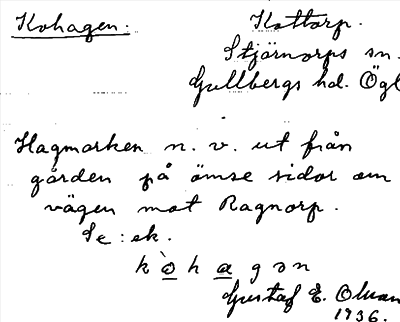 Kohagen:
Kottorp.
Stjärnorps sn.
Gullbergs hd. Ögl
Hagmarken n. v. ut från
gården på ömse sidor om
vägen mot Ragnorp.
Se: ek.
kòhagən
Gustaf E.
1936.